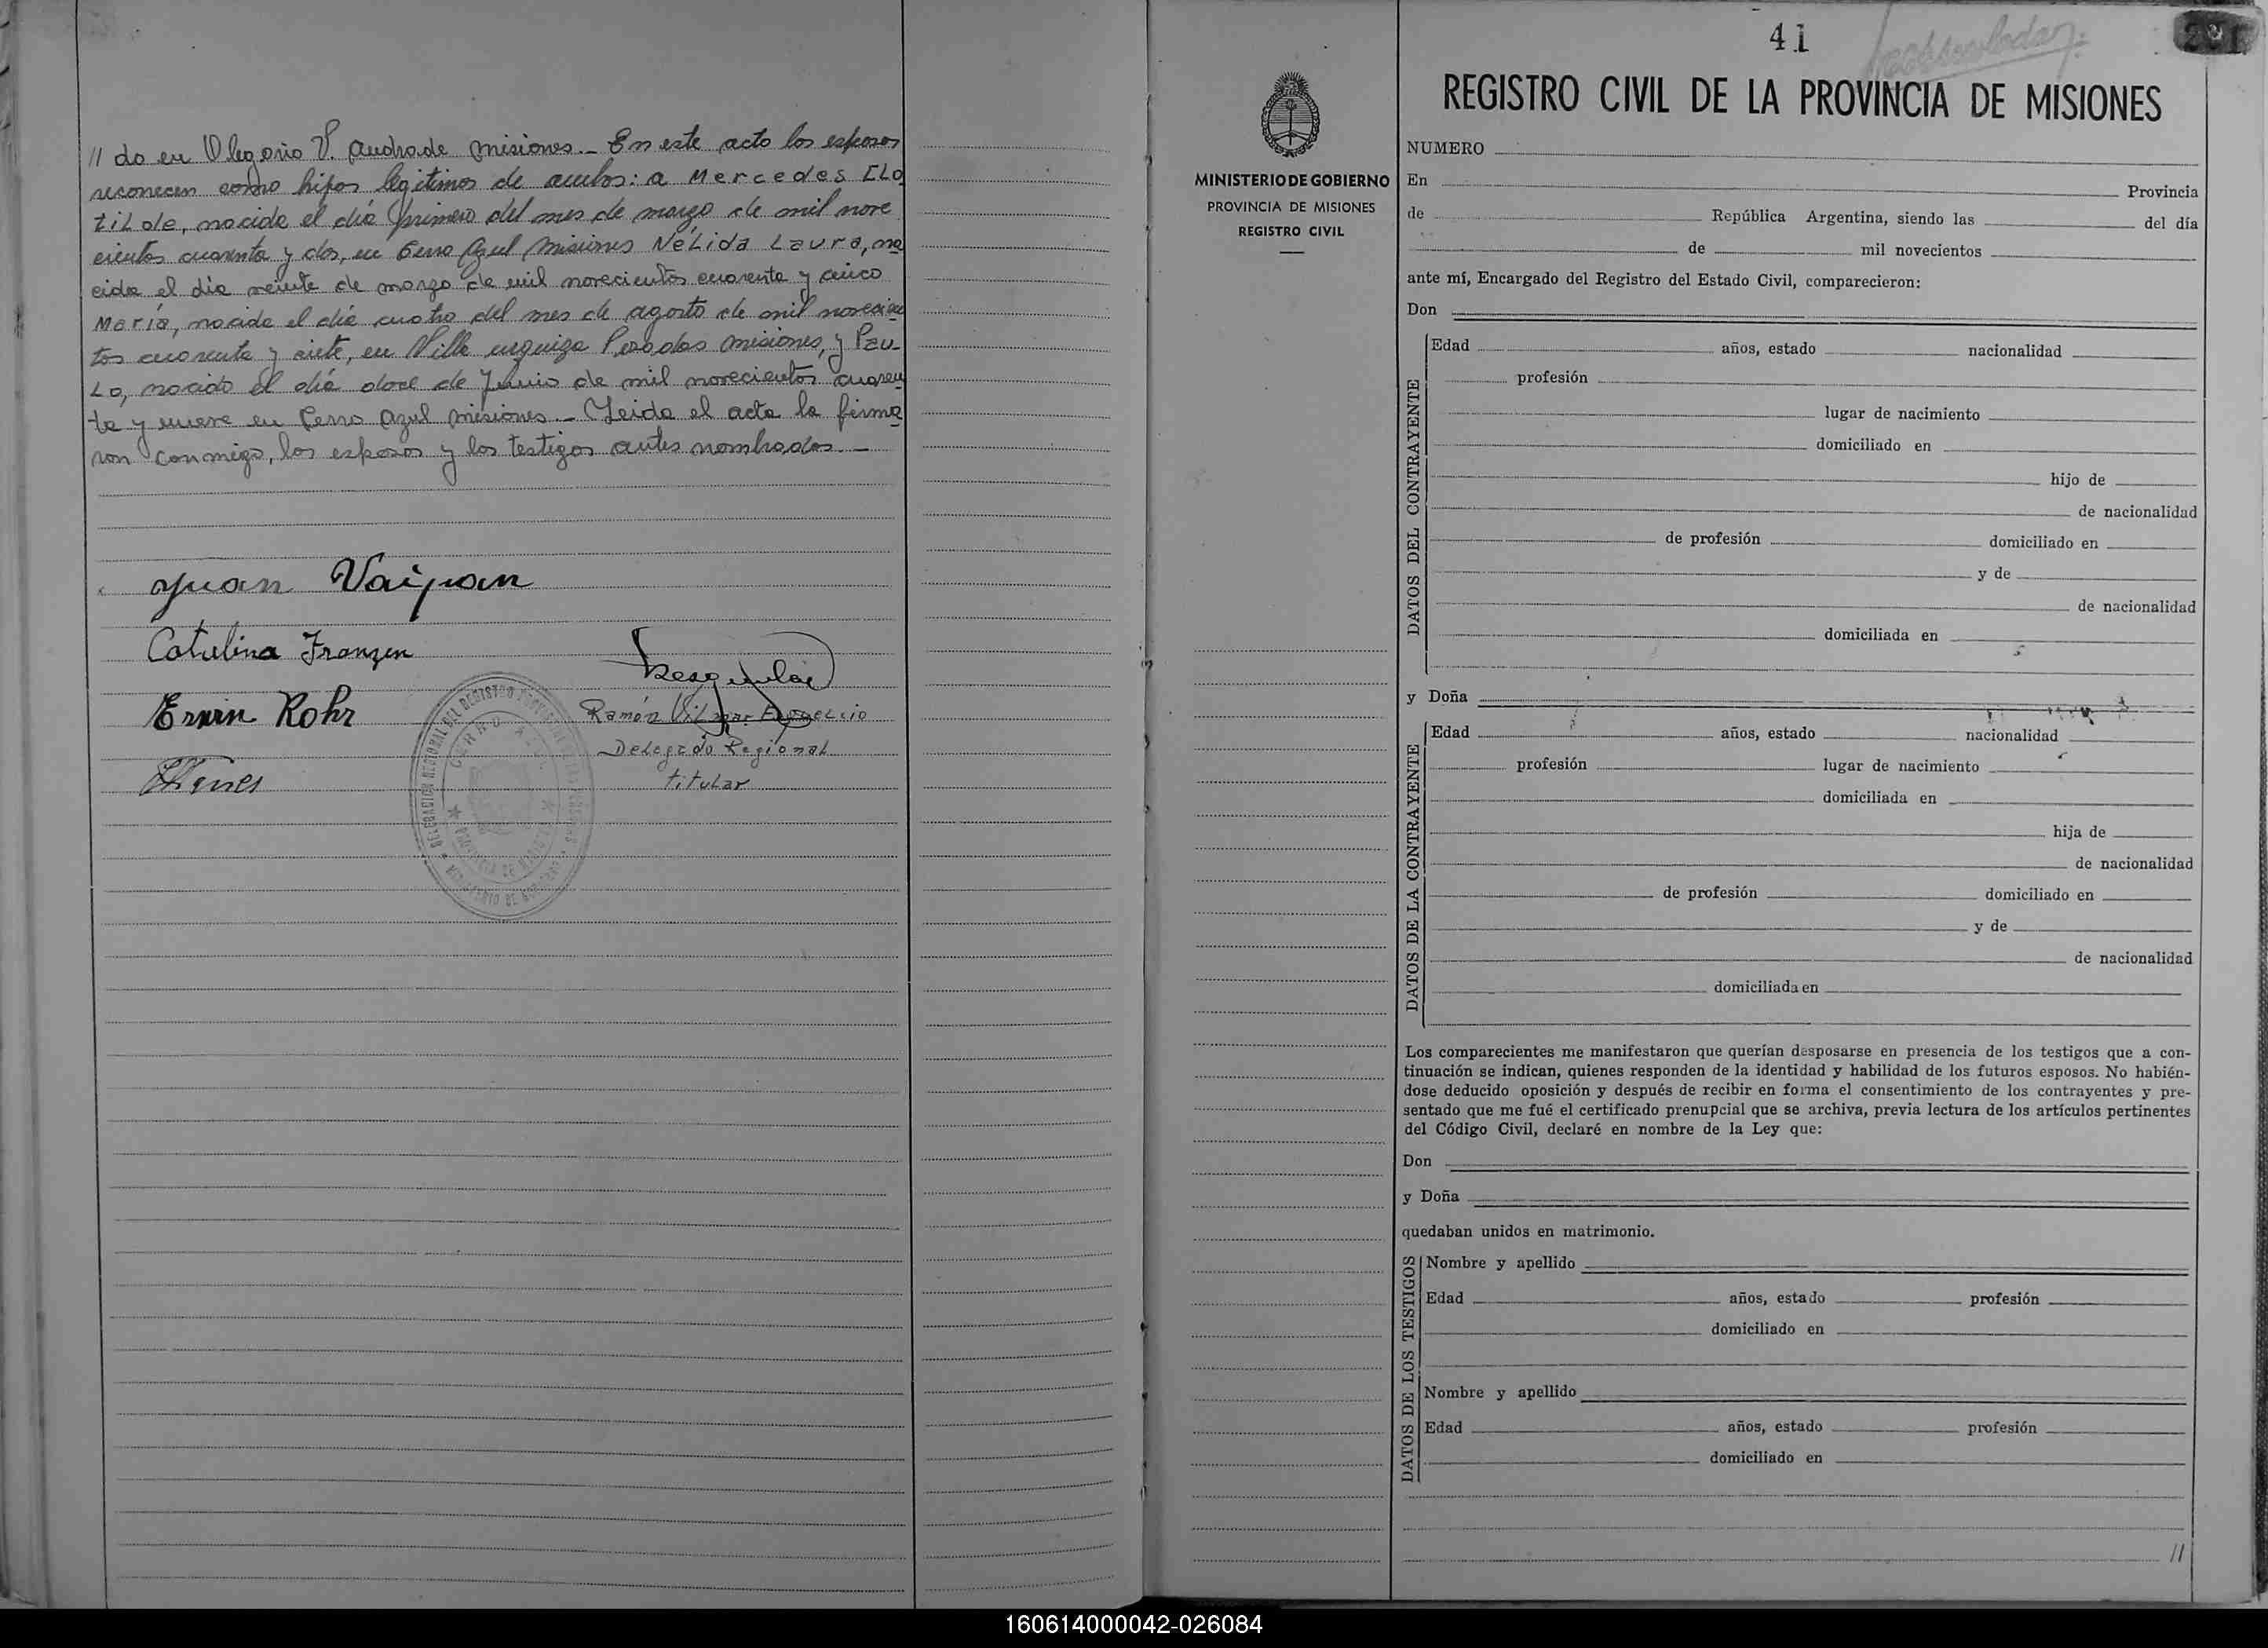 // do en Olegario V. Andrade misiones._ En este acto los esposos
reconocen como hijos legítimos de ambos: a Mercedes CLo
tiLde, nacida el día primero del mes de marzo de mil nove
cientos cuarenta y dos, en Cerro Azul Misiones NéLida Laura, na
cida el día veinte de marzo de mil novecientos cuarenta y cinco
María, nacida el día cuatro del mes de agosto de mil novecien
tos cuarenta y siete, en Villa urquiza Posadas misiones, y Pau-
Lo, nacido el día doce de Junio de mil novecientos cuaren
ta y nueve en Cerro Azul misiones._ Leida el acta la firma
ron conmigo, los esposos y los testigos antes nombrados._
Juan Vaipan
Catalina Franzen
Erwin Rohr
Ramón
Delegado Regional
titular
CERRO AZUL
PROVINCIA DE MISIONES
41
REGISTRO CIVIL DE LA PROVINCIA DE MISIONES
MINISTERIO DE GOBIERNO
PROVINCIA DE MISIONES
REGISTRO CIVIL
NUMERO
En Provincia
de República Argentina, siendo las del día
de mil novecientos
ante mí, Encargado del Registro del Estado Civil, comparecieron:
Don
DATOS DEL CONTRAYENTE
Edad años, estado nacionalidad
profesión
lugar de nacimiento
domiciliado en
hijo de
de nacionalidad
de profesión domiciliado en
y de
de nacionalidad
domiciliada en
y Doña
DATOS DE LA CONTRAYENTE
Edad años, estado nacionalidad
profesión lugar de nacimiento
domiciliada en
hija de
de nacionalidad
de profesión domiciliado en
y de
de nacionalidad
domiciliada en
Los comparecientes me manifestaron que querían desposarse en presencia de los testigos que a con-
tinuación se indican, quienes responden de la identidad y habilidad de los futuros esposos. No habién-
dose deducido oposición y después de recibir en forma el consentimiento de los contrayentes y pre-
sentado que me fué el certificado prenupcial que se archiva, previa lectura de los artículos pertinentes
del Código Civil, declaré en nombre de la Ley que:
Don
y Doña
quedaban unidos en matrimonio.
DATOS DE LOS TESTIGOS
Nombre y apellido
Edad años, estado profesión
domiciliado en
Nombre y apellido
Edad años, estado profesión
domiciliado en
//
160614000042-026084